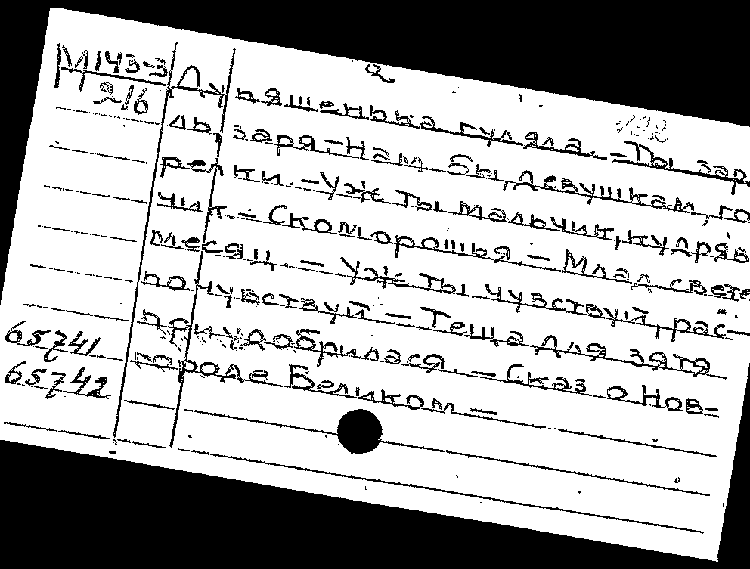 2
М143-3
216
Дуняшенька гуляла. – Ты зар
ль, заря – Нам бы, девушкам, го
релки. – Уж ты мальчик, кудряв
чик. – Скоморошья. – Млад свете
месяц. – Уж ты чувствуй, рас-
почувствуй – Теща для зятя
приудобрилася. – Сказ о Нов-
городе Великом –
65741
65742